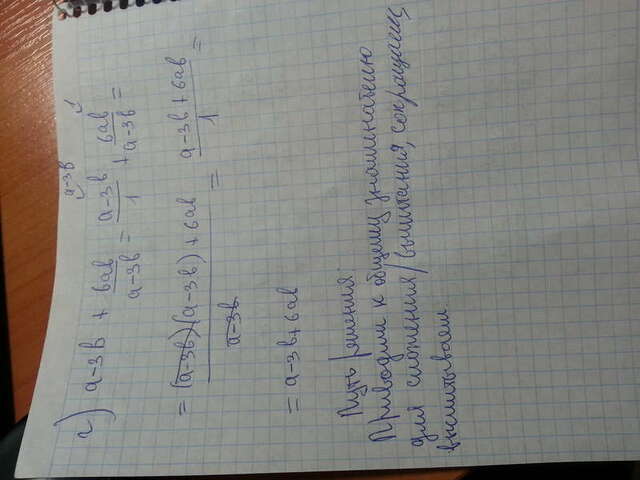 г) a-3b + 6ab/a-3b = a-3b/1 (a-3b + 6ab/a-3b (1 =
= (a-3b)(a-3b)+6ab/a-3b = a-3b+6ab/1 =
= a-3b+6ab
Путь решения:
Приводим к общему знаменателю
для сложения/вычитания, сокращаем,
высчитываем.